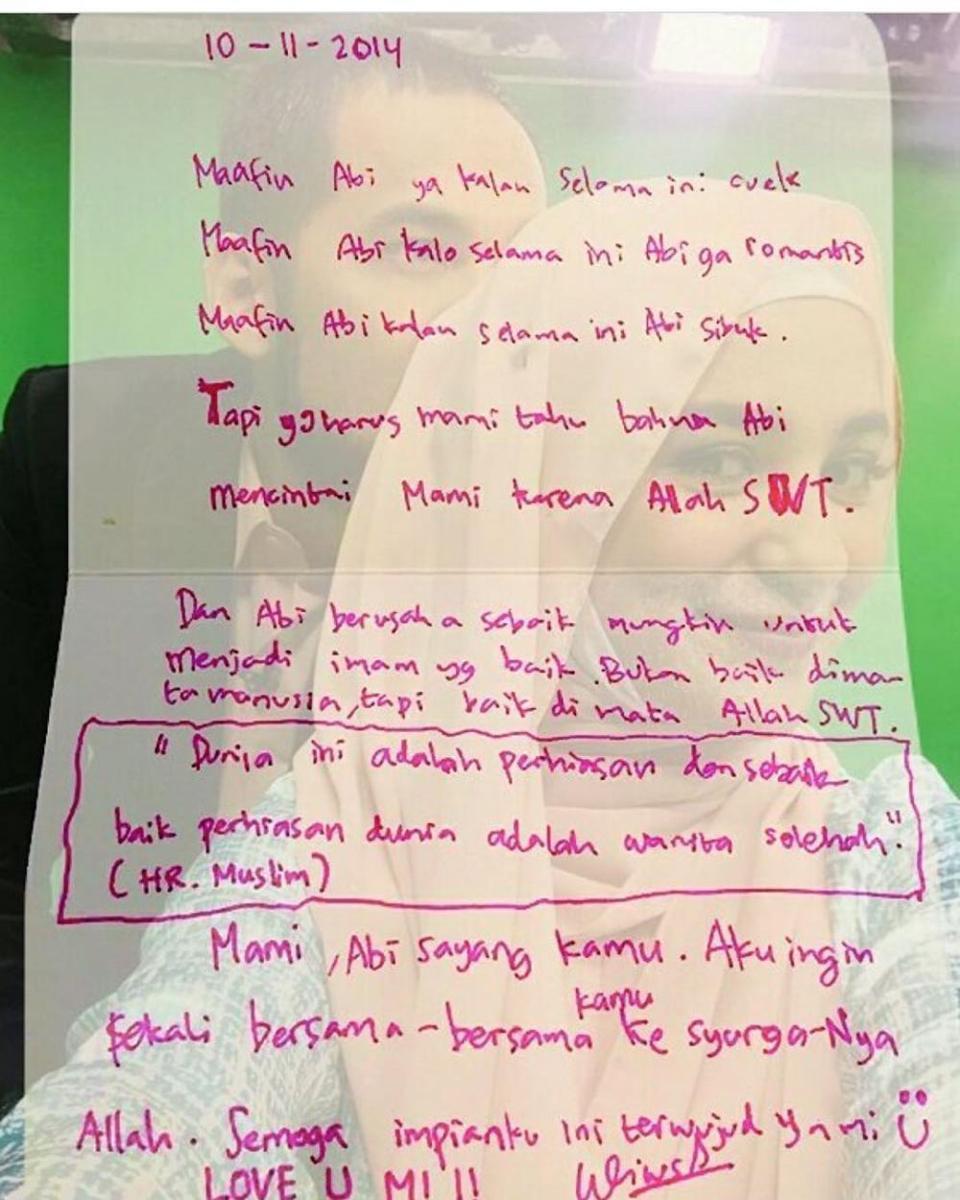 10 - 11 - 2014
Maafin Abi ya kalau selama ini cuek
Maafin Abi kalo selama ini Abi ga romantis
Maafin Abi kalau selama ini Abi sibuk.
Tapi yg harus mami tahu bahwa Abi
mencintai Mami karena Allah SWT.
Dan Abi berusaha sebaik mungkin untuk
menjadi imam yg baik. Bukan baik dima-
ta manusia, tapi baik di mata Allah SWT.
" Dunia ini adalah perhiasan dan sebaik
baik perhiasan dunia adalah wanita solehah."
(HR. Muslim)
Mami, Abi sayang kamu. Aku ingin
kamu
sekali bersama-bersama ke syurga-Nya
Allah. Semoga impianku ini terwujud ya mi
LOVE U MI !!